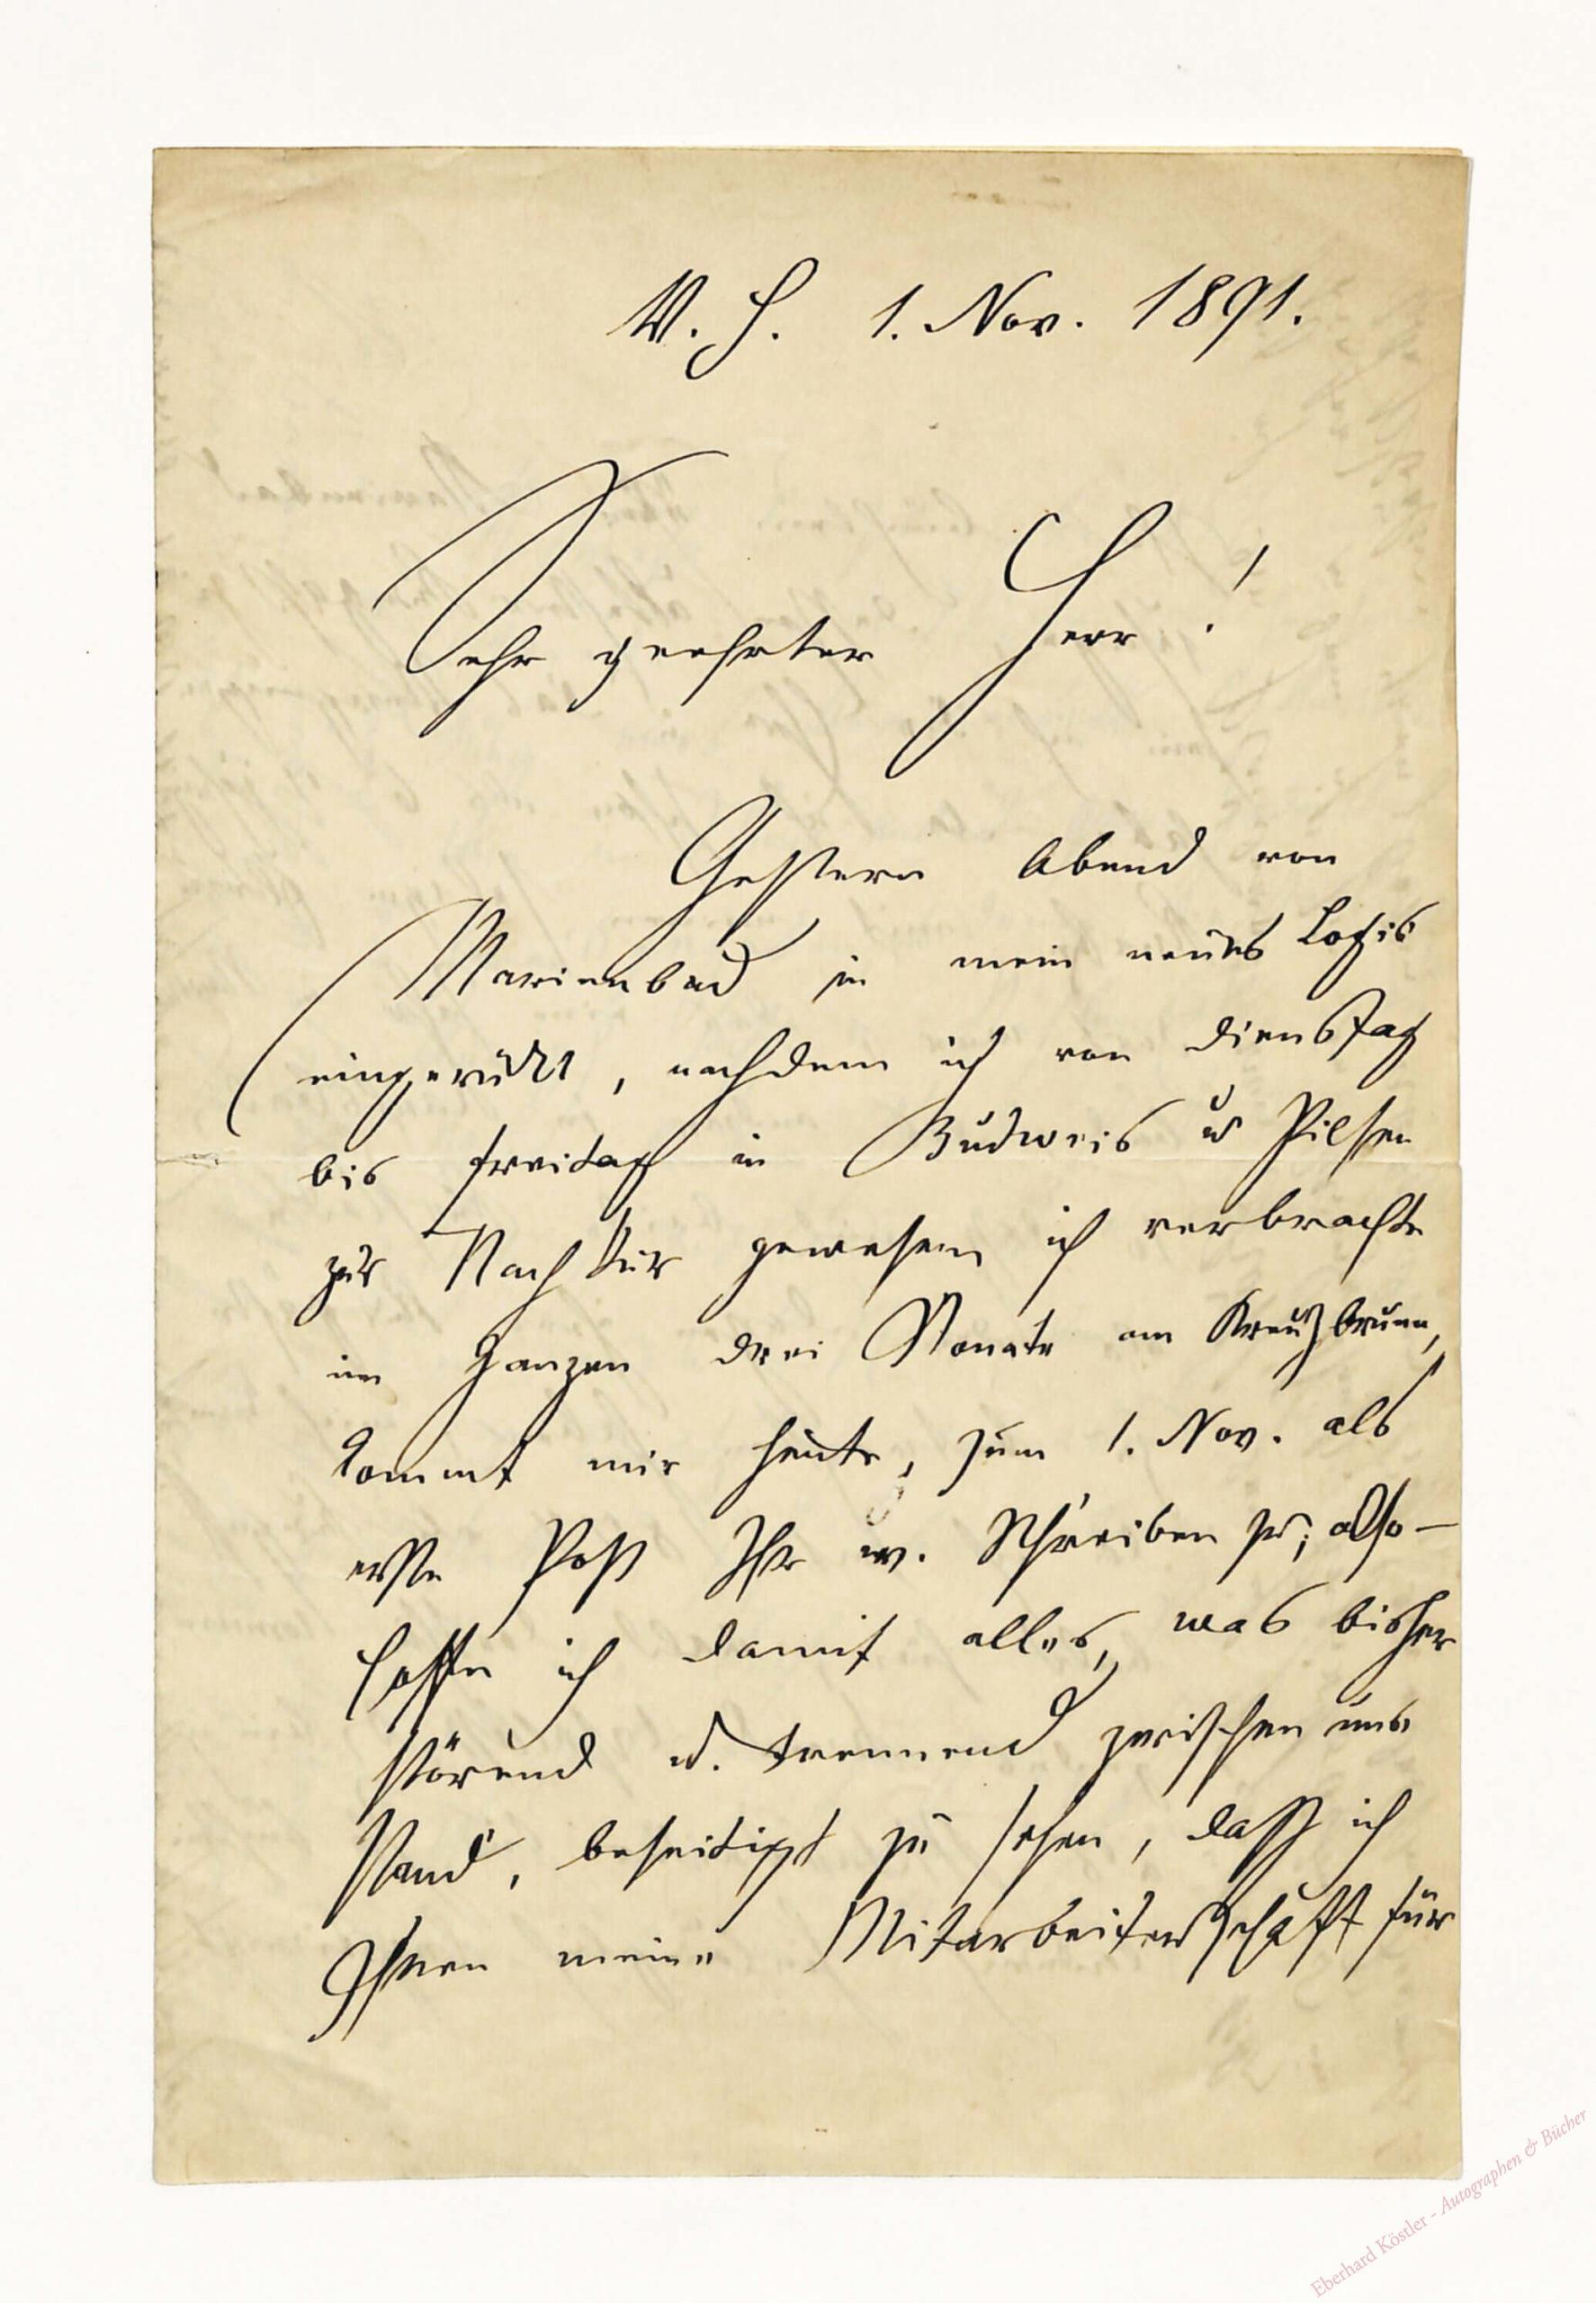 W. H. 1. Nov. 1891.
Sehr geehrter Herr!
Gestern Abend von
Marienbad in mein neues Logis
eingerückt, nachdem ich von Dienstag
bis Freitag in Budweis u Pilsen
zur Nachkur gewesen ich verbrachte
im Ganzen drei Monate am Kreuzbrunn,
kommt mir heute, zum 1. Nov. als
erste Post Ihr w. Schreiben zu; also –
hoffe ich damit alles, was bisher
störend u. trennend zwischen uns
stand, beseitigt zu sehen, dass ich
Ihnen meine Mitarbeiterschaft für
Eberhard Köstler - Autographen & Bücher